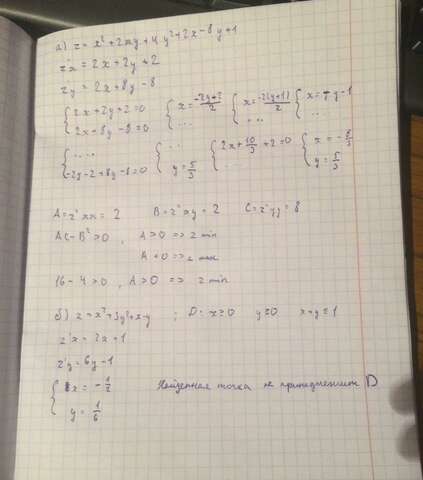 а) z = x² + 2xy + 4y² + 2x - 8y + 1
z'x = 2x + 2y + 2
z'y = 2x + 8y - 8
{ 2x + 2y + 2 = 0 { x = -2y+2/2 { x = -2(y+1)/2 { x = -y-1
{ 2x + 8y - 8 = 0 { ... { ... { ...
{ .... { ... { 2x + 10/3 + 2 = 0 { x = -8/3
{ -2y - 2 + 8y - 8 = 0 { y = 5/3 { ... { y = 5/3
A = z''xx = 2 B = z''xy = 2 C = z''yy = 8
AC - B² > 0, A > 0 => z min
A < 0 => z max
16 - 4 > 0, A > 0 => z min
б) z = x² + 3y² + x - y ; D: x ≥ 0 y ≥ 0 x + y ≤ 1
z'x = 2x + 1
z'y = 6y - 1
{ x = -1/2 Найденная точка не принадлежит D
{ y = 1/6